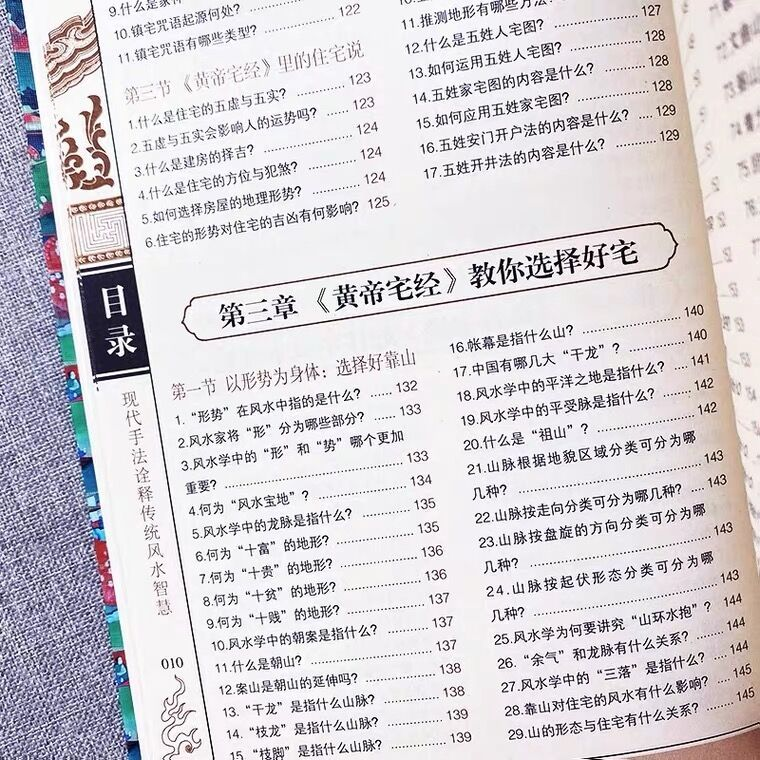 10.镇宅咒语起源何处? 122
11.镇宅咒语有哪些类型?
第三节 《黄帝宅经》里的住宅说
1.什么是住宅的五虚与五实? ………… 123
2.五虚与五实会影响人的运势吗? …… 123
3.什么是建房的择吉? ………………… 124
4.什么是住宅的方位与犯煞? ………… 124
5.如何选择房屋的地理形势? ………… 124
6.住宅的形势对住宅的吉凶有何影响? 125
11.推测地形有哪些方法? 127
12.什么是五姓人宅图? ………… 128
13.如何运用五姓人宅图? ………… 128
14.五姓家宅图的内容是什么? …… 128
15.如何应用五姓家宅图? ………… 128
16.五姓安门开户法的内容是什么? … 129
17.五姓开井法的内容是什么? ……… 129
第三章 《黄帝宅经》教你选择好宅
第一节 以形势为身体：选择好靠山
1.“形势”在风水中指的是什么? …… 132
2.风水家将“形”分为哪些部分? …… 133
3.风水学中的“形”和“势”哪个更加
重要? ………………………………… 133
4.何为“风水宝地”? ………………… 134
5.风水学中的龙脉是指什么? ………… 135
6.何为“十富”的地形? ……………… 135
7.何为“十贵”的地形? ……………… 136
8.何为“十贫”的地形? ……………… 136
9.何为“十贱”的地形? ……………… 137
10.风水学中的朝案是指什么? ……… 137
11.什么是朝山? ……………………… 137
12.案山是朝山的延伸吗? …………… 138
13.“干龙”是指什么山脉? ………… 138
14.“枝龙”是指什么山脉? ………… 139
15.“枝脚”是指什么山脉? ………… 139
16.帐幕是指什么山? ………………… 140
17.中国有哪几大“干龙”? ………… 140
18.风水学中的平洋之地是指什么? … 141
19.风水学中的平受脉是指什么? …… 142
20.什么是“祖山”? ………………… 142
21.山脉根据地貌区域分类可分为哪
几种? ………………………………… 143
22.山脉按走向分类可分为哪几种? … 143
23.山脉按盘旋的方向分类可分为哪
几种? ………………………………… 143
24.山脉按起伏形态分类可分为哪
几种? ………………………………… 143
25.风水学为何要讲究“山环水抱”? 144
26.“余气”和龙脉有什么关系? …… 144
27.风水学中的“三落”是指什么? … 144
28.靠山对住宅的风水有什么影响? … 145
29.山的形态与住宅有什么关系? …… 145
目录
现代手法诠释传统风水智慧
010